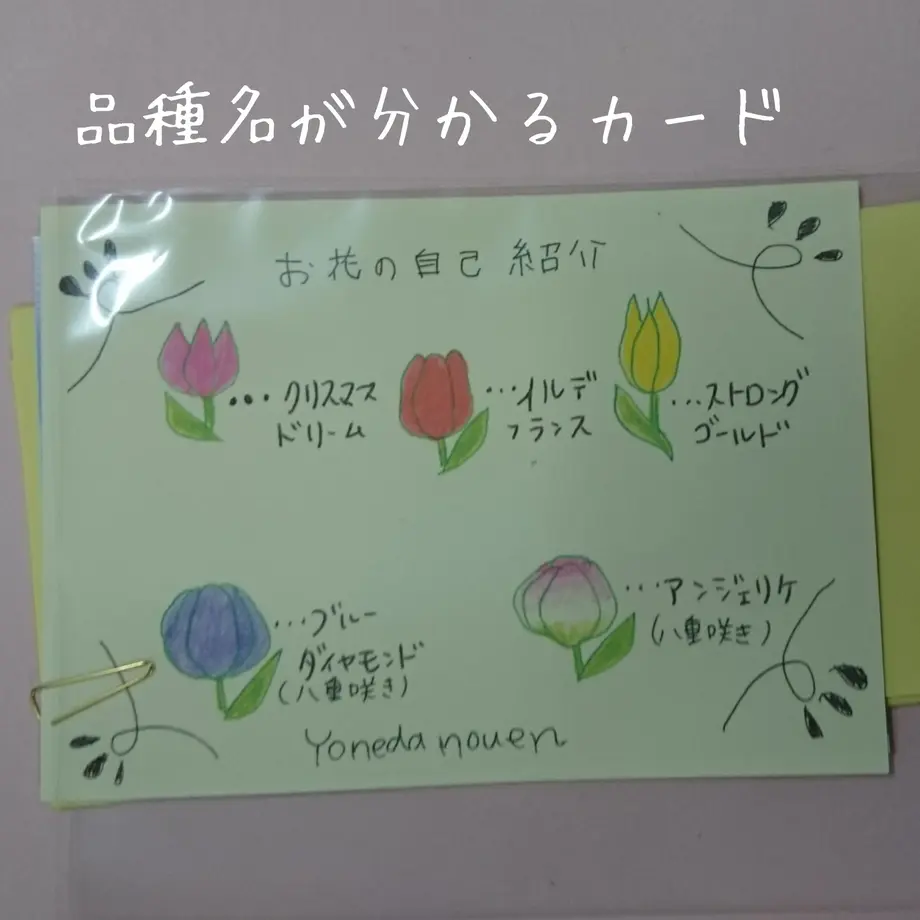 品種名が分かるカード
お花の自己紹介
・・・クリスマス
ドリーム
・・・イルデ
フランス
・・・ストロング
ゴールド
・・・ブルー
ダイヤモンド
(八重咲き)
・・・アンジェリケ
(八重咲き)
Yoneda nouen